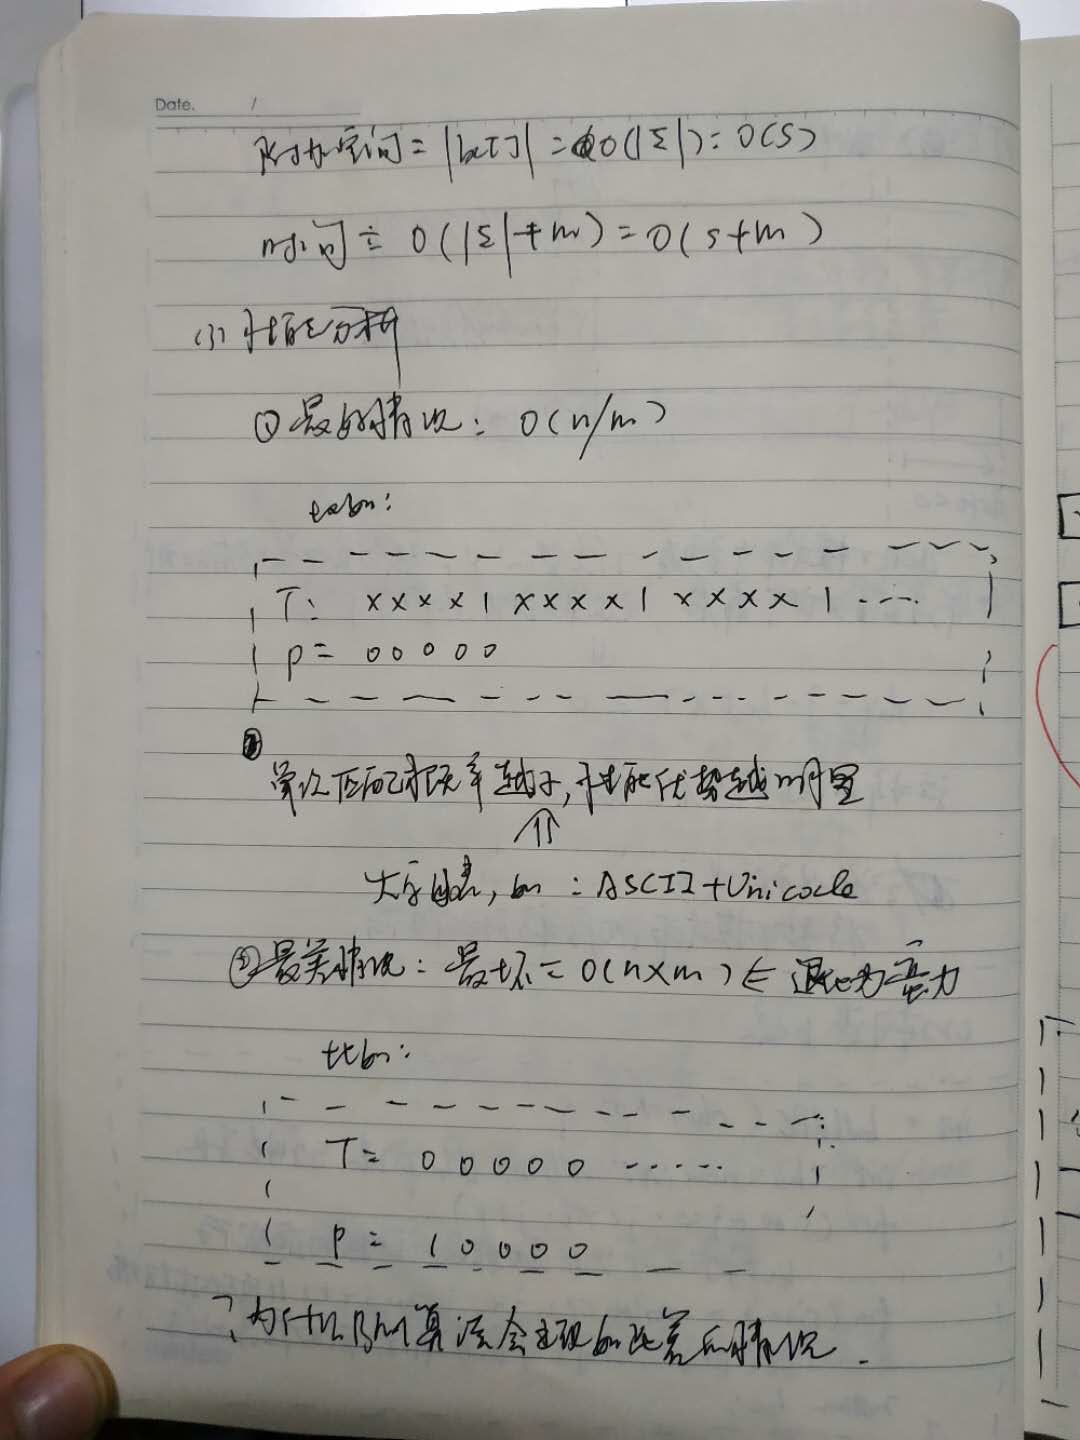 Date. /
附加空间 = |bc[]| = O(|Σ|) = O(s)
时间 = O(|Σ|+m) = O(s+m)
(3) 性能分析
① 最好情况: O(n/m)
eabn:
T: xxxx1 xxxx1 xxxx1 ·····
P = 00000
②
单次匹配概率越小,性能优势越明显
⇑
大字母表, bn : ASCII+Unicode
③ 最差情况: 最坏 = O(n×m) ∈ 退化为蛮力
比如:
T = 00000 ······
P = 10000
?为什么BM算法会出现如此差的情况.